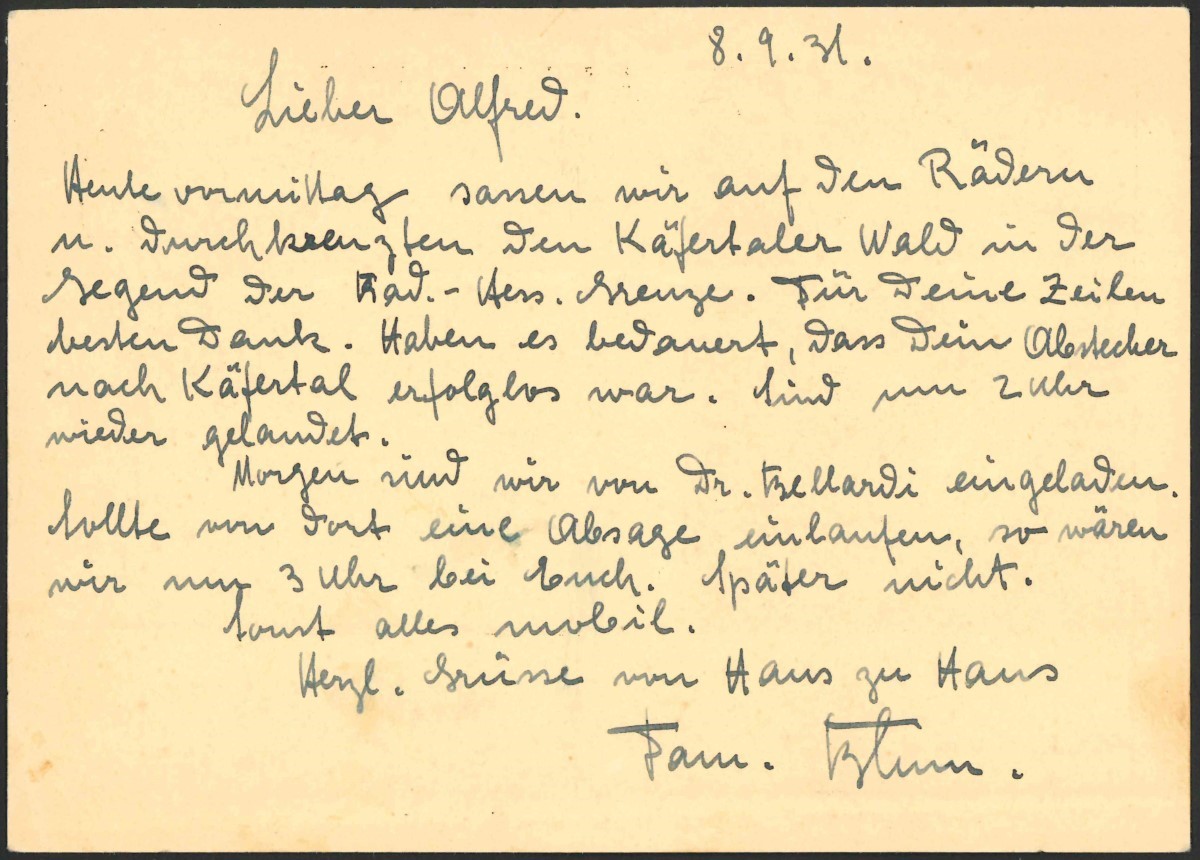 8. 9. 31.
Lieber Alfred.
Heute vormittag sassen wir auf den Rädern
u. durchkreuzten den Käfertaler Wald in der
Gegend der Bad.-Hess. Grenze. Für Deine Zeilen
besten Dank. Haben es bedauert, dass Dein Abstecher
nach Käfertal erfolglos war. Sind um 2 Uhr
wieder gelandet.
Morgen sind wir von Dr. Bellardi eingeladen.
Sollte von dort eine Absage einlaufen, so wären
wir um 3 Uhr bei Euch. Später nicht.
Sonst alles mobil.
Herzl. Grüsse von Haus zu Haus
Fam. Blum.